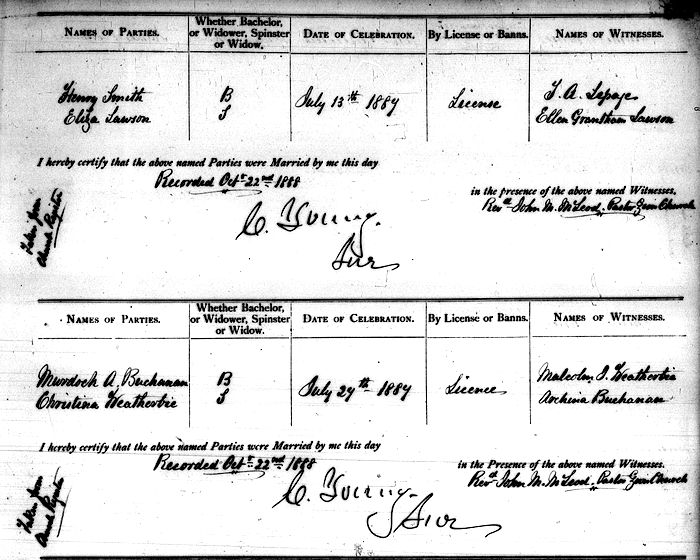 NAMES OF PARTIES. Whether Bachelor, or Widower, Spinster or Widow. DATE OF CELEBRATION. By License or Banns. NAMES OF WITNESSES.
Henry Smith B July 13th 1887 License T. A. Lepage
Eliza Lawson S Ellen Grantham Lawson
I hereby certify that the above named Parties were Married by me this day
Recorded Oct 22nd 1888 in the presence of the above named Witnesses.
Revd John M. McLeod, Pastor Zion Church
Taken from Church Register
C. Young.
Surr
NAMES OF PARTIES. Whether Bachelor, or Widower, Spinster or Widow. DATE OF CELEBRATION. By License or Banns. NAMES OF WITNESSES.
Murdoch A. Buchanan B July 27th 1887 Licence Malcolm J. Weatherbie
Christina Weatherbie S Buchanan
I hereby certify that the above named Parties were Married by me this day
Recorded Oct 22nd 1888 in the Presence of the above named Witnesses.
Revd John M. McLeod, Pastor Zion Church
Taken from Church Register
C. Young.
Surr